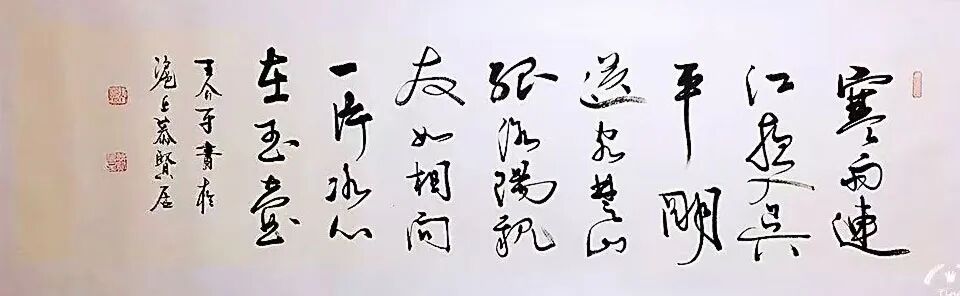 寒雨連
江夜入吴
平明
送客楚山
孤洛陽親
友如相问
一片冰心
在玉壺
王介書於
滬上慕賢居